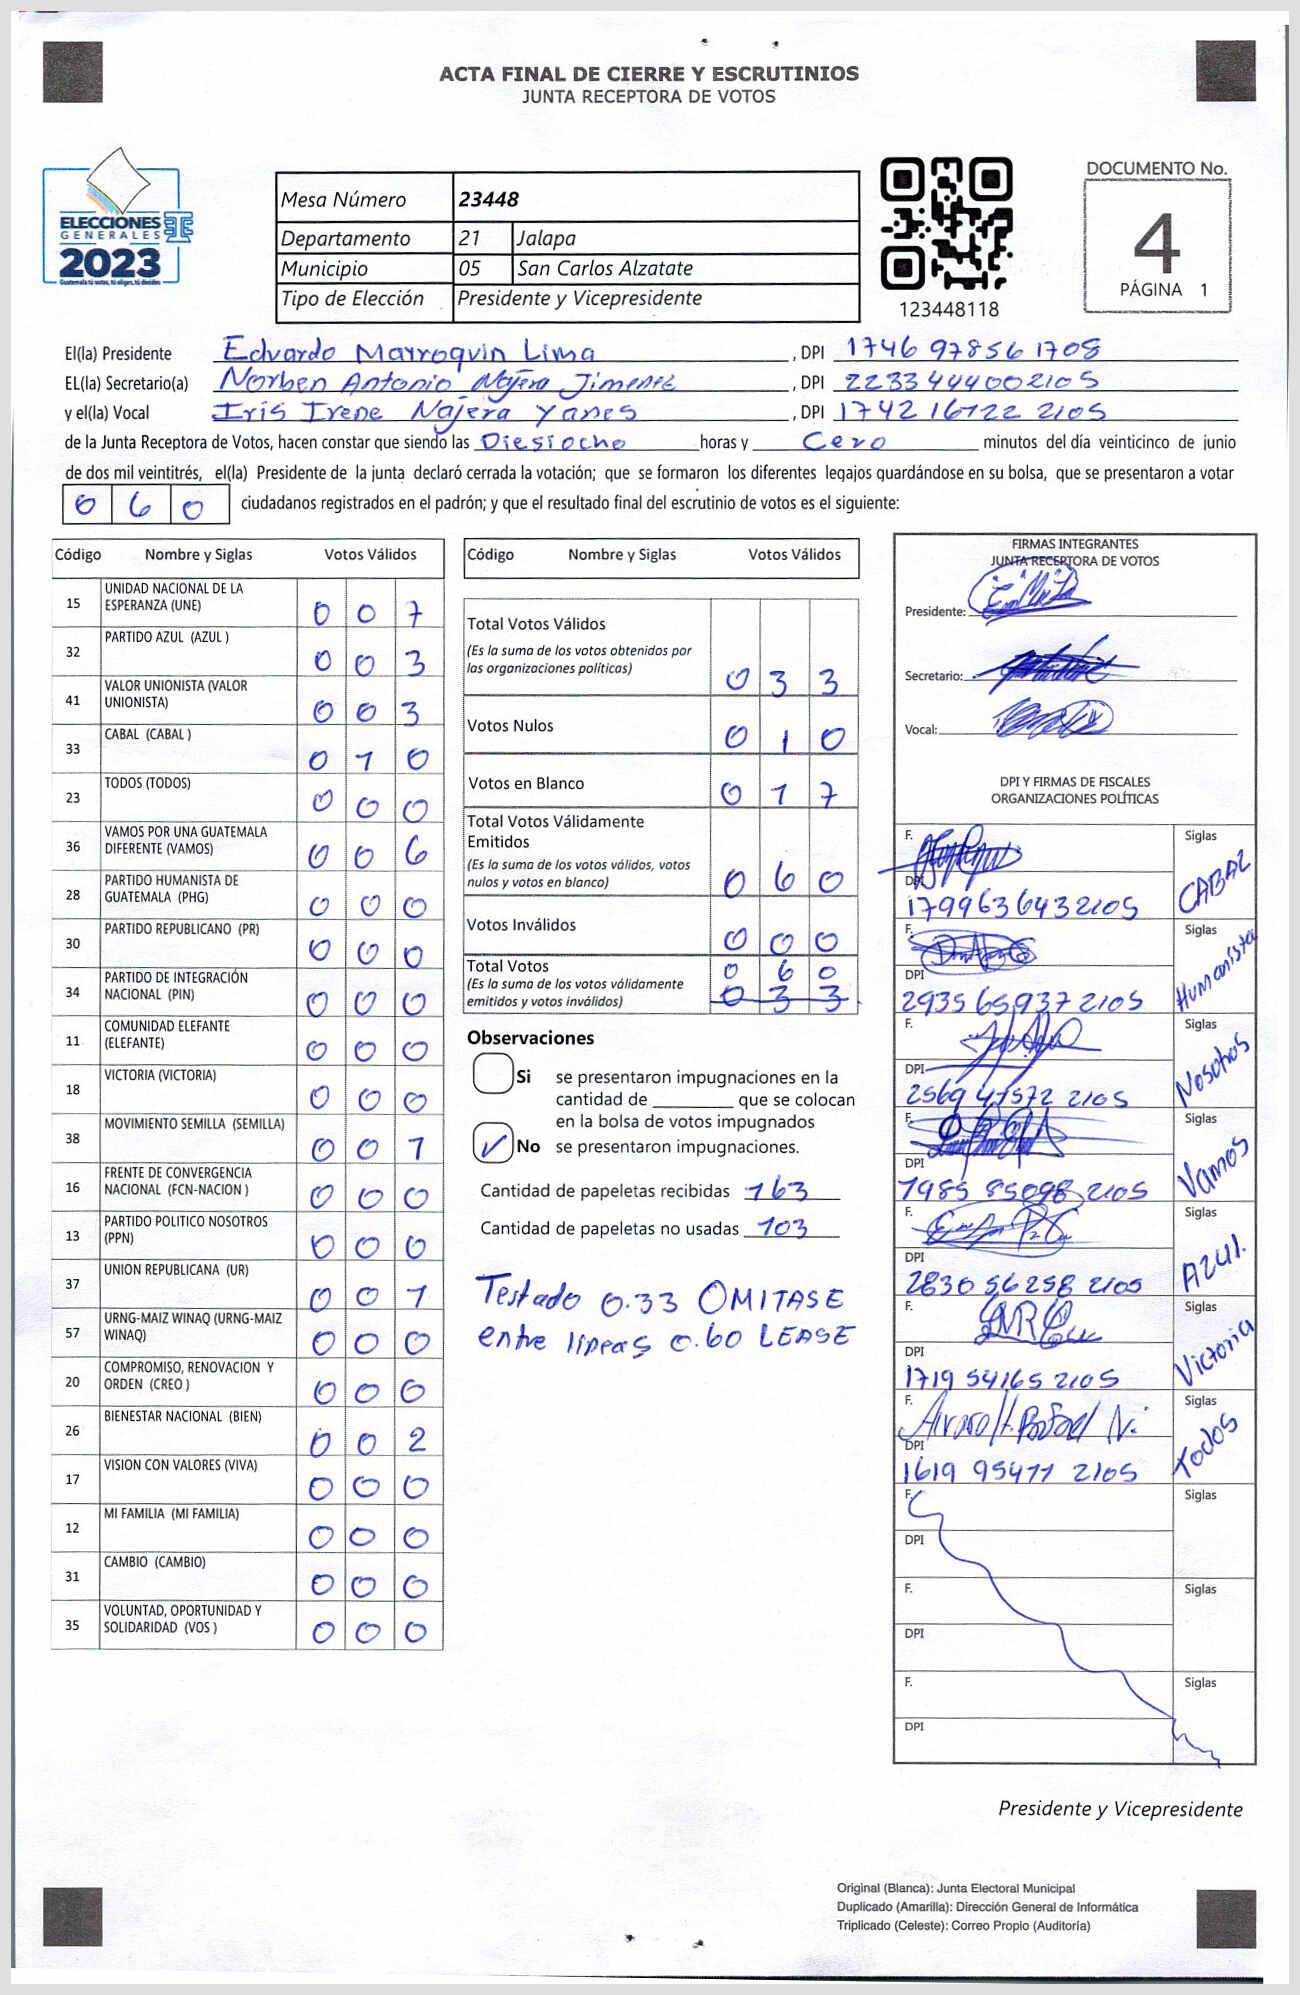 ACTA FINAL DE CIERRE Y ESCRUTINIOS
JUNTA RECEPTORA DE VOTOS
ELECCIONES
GENERALES
2023
Guatemala tú votas, tú eliges, tú decides
Mesa Número 23448
Departamento 21 Jalapa
Municipio 05 San Carlos Alzatate
Tipo de Elección Presidente y Vicepresidente
123448118
DOCUMENTO No.
4
PÁGINA 1
El(la) Presidente Edvardo Marroquin Lima , DPI 1746 97856 1708
EL(la) Secretario(a) Norben Antonio Najera Jimenez , DPI 2233 44400 2105
y el(la) Vocal Iris Irene Najera Yanes , DPI 1742 16722 2105
de la Junta Receptora de Votos, hacen constar que siendo las Diesiocho horas y Cero minutos del día veinticinco de junio
de dos mil veintitrés, el(la) Presidente de la junta declaró cerrada la votación; que se formaron los diferentes legajos guardándose en su bolsa, que se presentaron a votar
0 6 0 ciudadanos registrados en el padrón; y que el resultado final del escrutinio de votos es el siguiente:
Código Nombre y Siglas Votos Válidos
15 UNIDAD NACIONAL DE LA ESPERANZA (UNE) 0 0 7
32 PARTIDO AZUL (AZUL ) 0 0 3
41 VALOR UNIONISTA (VALOR UNIONISTA) 0 0 3
33 CABAL (CABAL ) 0 1 0
23 TODOS (TODOS) 0 0 0
36 VAMOS POR UNA GUATEMALA DIFERENTE (VAMOS) 0 0 6
28 PARTIDO HUMANISTA DE GUATEMALA (PHG) 0 0 0
30 PARTIDO REPUBLICANO (PR) 0 0 0
34 PARTIDO DE INTEGRACIÓN NACIONAL (PIN) 0 0 0
11 COMUNIDAD ELEFANTE (ELEFANTE) 0 0 0
18 VICTORIA (VICTORIA) 0 0 0
38 MOVIMIENTO SEMILLA (SEMILLA) 0 0 1
16 FRENTE DE CONVERGENCIA NACIONAL (FCN-NACION ) 0 0 0
13 PARTIDO POLITICO NOSOTROS (PPN) 0 0 0
37 UNION REPUBLICANA (UR) 0 0 1
57 URNG-MAIZ WINAQ (URNG-MAIZ WINAQ) 0 0 0
20 COMPROMISO, RENOVACION Y ORDEN (CREO ) 0 0 0
26 BIENESTAR NACIONAL (BIEN) 0 0 2
17 VISION CON VALORES (VIVA) 0 0 0
12 MI FAMILIA (MI FAMILIA) 0 0 0
31 CAMBIO (CAMBIO) 0 0 0
35 VOLUNTAD, OPORTUNIDAD Y SOLIDARIDAD (VOS ) 0 0 0
Código Nombre y Siglas Votos Válidos
Total Votos Válidos
(Es la suma de los votos obtenidos por
las organizaciones políticas) 0 3 3
Votos Nulos 0 1 0
Votos en Blanco 0 1 7
Total Votos Válidamente
Emitidos
(Es la suma de los votos válidos, votos
nulos y votos en blanco) 0 6 0
Votos Inválidos 0 0 0
Total Votos 0 6 0
(Es la suma de los votos válidamente
emitidos y votos inválidos) 0 3 3
Observaciones
Si se presentaron impugnaciones en la
cantidad de que se colocan
en la bolsa de votos impugnados
No se presentaron impugnaciones.
Cantidad de papeletas recibidas 163
Cantidad de papeletas no usadas 103
Testado 0.33 OMITASE
entre lineas 0.60 LEASE
FIRMAS INTEGRANTES
JUNTA RECEPTORA DE VOTOS
Presidente:
Secretario:
Vocal:
DPI Y FIRMAS DE FISCALES
ORGANIZACIONES POLÍTICAS
F. Siglas CABAL
DPI 1799 63643 2105
F. Siglas Humanista
DPI 2935 65937 2105
F. Siglas Nosotros
DPI 2569 47572 2105
F. Siglas Vamos
DPI 7985 85098 2105
F. Siglas AZUL.
DPI 2830 56258 2105
F. Siglas Victoria
DPI 1719 54165 2105
F. Siglas todos
DPI 1619 95477 2105
F. Siglas
DPI
F. Siglas
DPI
F. Siglas
DPI
Presidente y Vicepresidente
Original (Blanca): Junta Electoral Municipal
Duplicado (Amarilla): Dirección General de Informática
Triplicado (Celeste): Correo Propio (Auditoría)